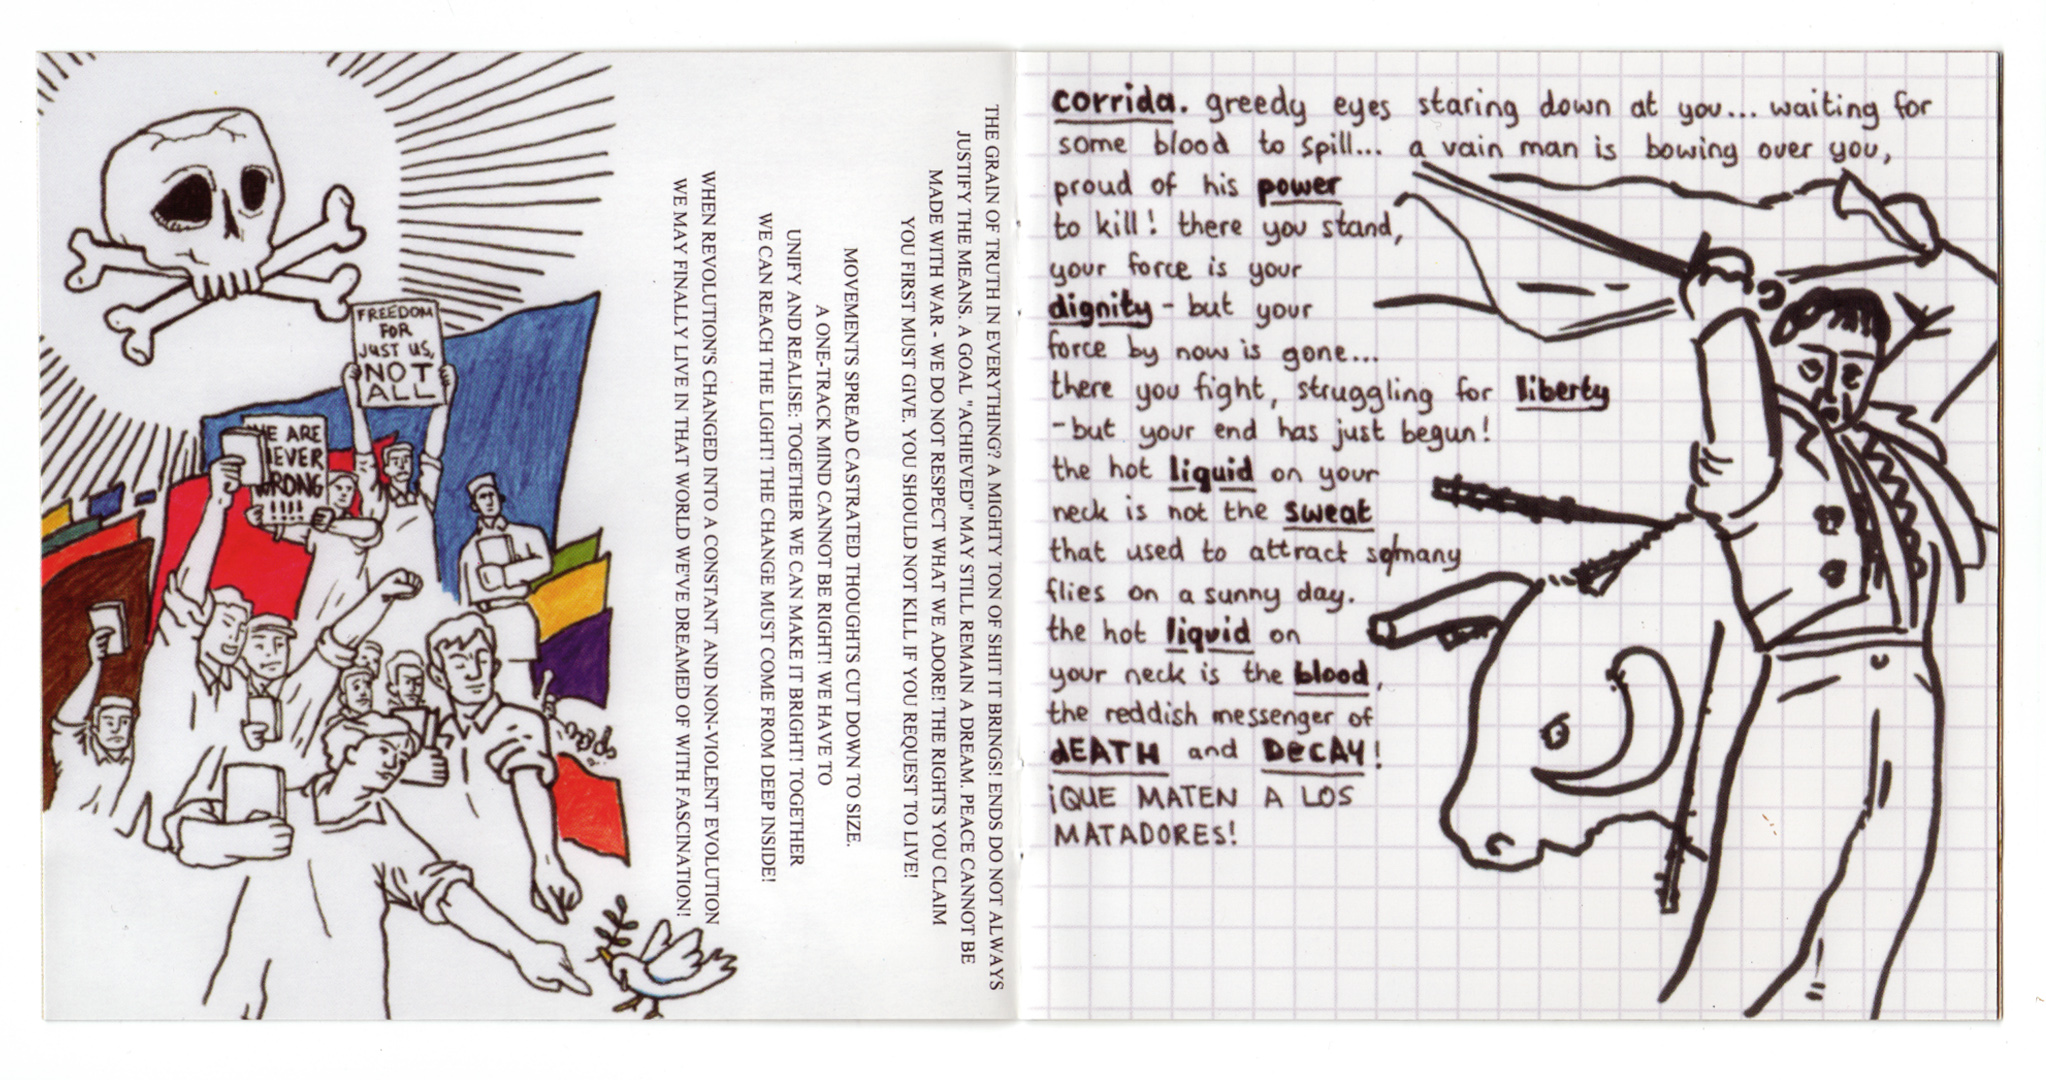 FREEDOM
FOR
JUST US,
NOT
ALL
WE ARE
NEVER
WRONG
!!!!
THE GRAIN OF TRUTH IN EVERYTHING? A MIGHTY TON OF SHIT IT BRINGS! ENDS DO NOT ALWAYS
JUSTIFY THE MEANS. A GOAL "ACHIEVED" MAY STILL REMAIN A DREAM. PEACE CANNOT BE
MADE WITH WAR - WE DO NOT RESPECT WHAT WE ADORE! THE RIGHTS YOU CLAIM
YOU FIRST MUST GIVE. YOU SHOULD NOT KILL IF YOU REQUEST TO LIVE!
MOVEMENTS SPREAD CASTRATED THOUGHTS CUT DOWN TO SIZE.
A ONE-TRACK MIND CANNOT BE RIGHT! WE HAVE TO
UNIFY AND REALISE: TOGETHER WE CAN MAKE IT BRIGHT! TOGETHER
WE CAN REACH THE LIGHT! THE CHANGE MUST COME FROM DEEP INSIDE!
WHEN REVOLUTION'S CHANGED INTO A CONSTANT AND NON-VIOLENT EVOLUTION
WE MAY FINALLY LIVE IN THAT WORLD WE'VE DREAMED OF WITH FASCINATION!
corrida. greedy eyes staring down at you... waiting for
some blood to spill... a vain man is bowing over you,
proud of his power
to kill! there you stand,
your force is your
dignity - but your
force by now is gone...
there you fight, struggling for liberty
-but your end has just begun!
the hot liquid on your
neck is not the sweat
that used to attract so many
flies on a sunny day.
the hot liquid on
your neck is the blood,
the reddish messenger of
dEATH and DeCAY!
¡QUE MATEN A LOS
MATADORES!